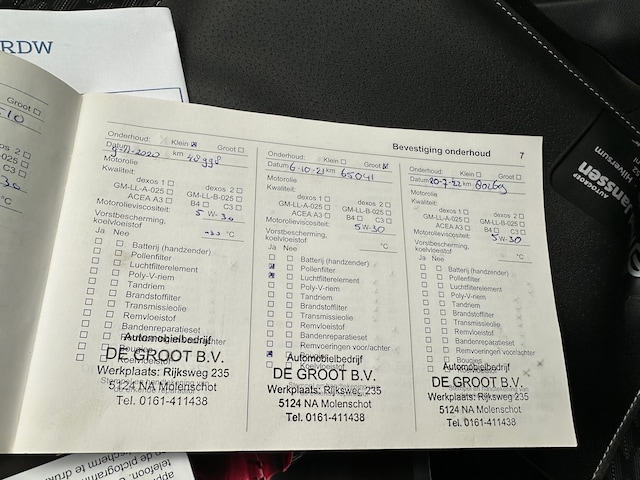 RDW
Groot
Bevestiging onderhoud 7
Onderhoud: Klein Groot
Datum 9-11-2020 km 48998
Motorolie
Kwaliteit:
dexos 1 dexos 2
GM-LL-A-025 GM-LL-B-025
ACEA A3 B4 C3
Motorolieviscositeit: 5 W-30
Vorstbescherming,
koelvloeistof -30 °C
Ja Nee
Batterij (handzender)
Pollenfilter
Luchtfilterelement
Poly-V-riem
Tandriem
Brandstoffilter
Transmissieolie
Remvloeistof
Bandenreparatieset
Automobielbedrijf
DE GROOT B.V.
Werkplaats: Rijksweg 235
5124 NA Molenschot
Tel. 0161-411438
Onderhoud: Klein Groot
Datum 6-10-21 km 65041
Motorolie
Kwaliteit:
dexos 1 dexos 2
GM-LL-A-025 GM-LL-B-025
ACEA A3 B4 C3
Motorolieviscositeit: 5W-30
Vorstbescherming,
koelvloeistof °C
Ja Nee
Batterij (handzender)
Pollenfilter
Luchtfilterelement
Poly-V-riem
Tandriem
Brandstoffilter
Transmissieolie
Remvloeistof
Bandenreparatieset
Remvoeringen voor/achter
Bougies
Koelvloeistof
Automobielbedrijf
DE GROOT B.V.
Werkplaats: Rijksweg 235
5124 NA Molenschot
Tel. 0161-411438
Onderhoud: Klein Groot
Datum 20-7-22 km
Motorolie
Kwaliteit:
dexos 1 dexos 2
GM-LL-A-025 GM-LL-B-025
ACEA A3 B4 C3
Motorolieviscositeit: 5W-30
Vorstbescherming,
koelvloeistof °C
Ja Nee
Batterij (handzender)
Pollenfilter
Luchtfilterelement
Poly-V-riem
Tandriem
Brandstoffilter
Transmissieolie
Remvloeistof
Bandenreparatieset
Remvoeringen voor/achter
Bougies
Automobielbedrijf
DE GROOT B.V.
Werkplaats: Rijksweg 235
5124 NA Molenschot
Tel. 0161-411438
AUTOGROEP
Janssen